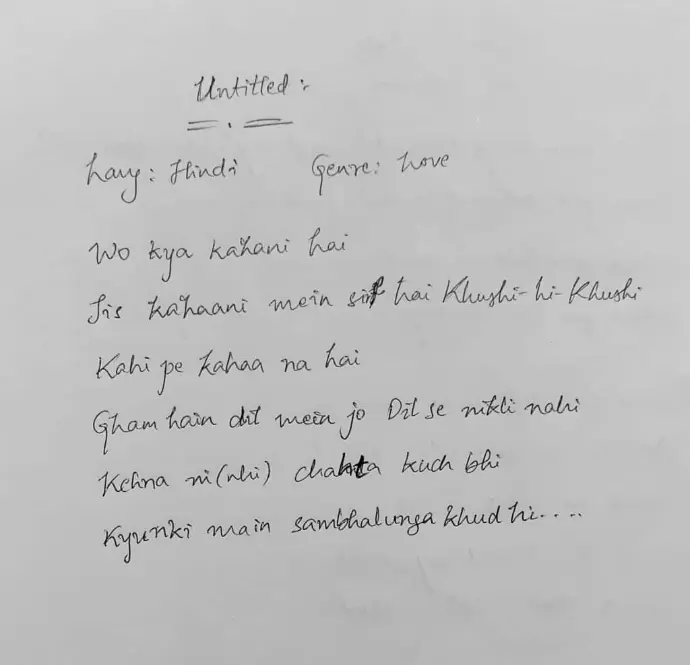 Untitled :
Lang: Hindi Genre: Love
Wo kya kahani hai
Jis kahaani mein sirf hai Khushi-hi-Khushi
Kahi pe kahaa na hai
Gham hain dil mein jo Dil se nikli nahi
Kehna ni (nhi) chahta kuch bhi
Kyunki main sambhalunga khud hi....